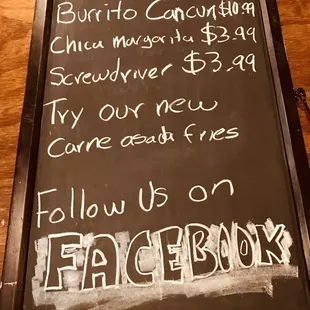 Burrito Cancun $10.99
Chica margarita $3.99
Screwdriver $3.99
Try our new
Carne asada fries
Follow Us on
FACEBOOK